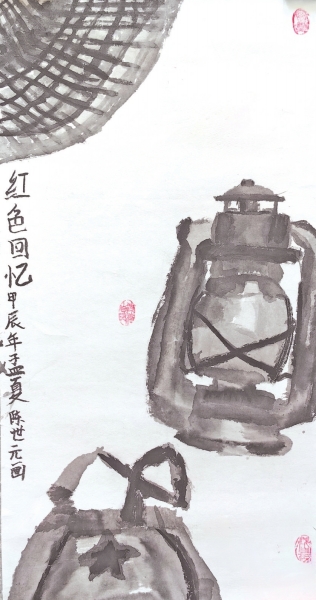 红色回忆甲辰年孟夏陈世元画